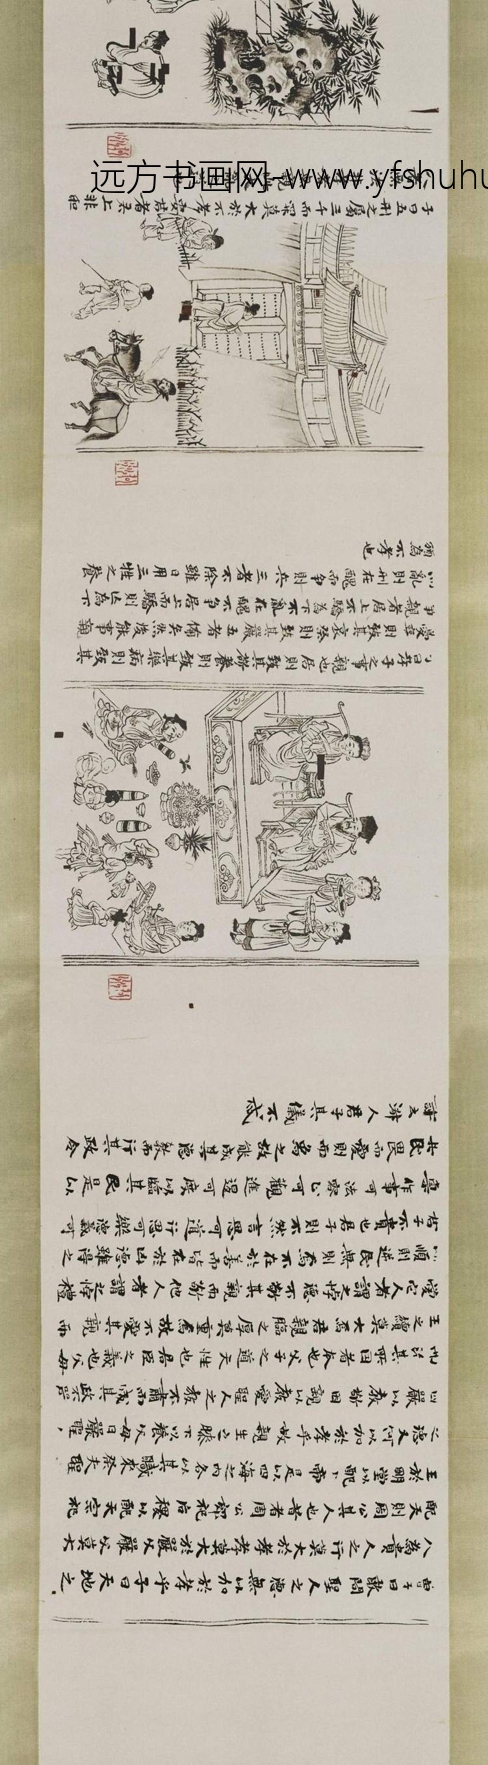 曾子曰敢問聖人之德無以加於孝乎子曰天地之
人為貴人之行莫大於孝孝莫大於嚴父嚴父莫大
配天則周公其人也昔者周公郊祀后稷以配天宗祀
王於明堂以配上帝是以四海之內各以其職來夫聖
之德又何以加於孝乎故親生之膝下以養父母日嚴聖
因嚴以教敬因親以教愛聖人之教不肅而成其政不嚴
而其所因者本也父子之道天性也君臣之義也父母
生之續莫大焉君親臨之厚莫重焉故不愛其親而
愛它人者謂之悖德不敬其親而敬他人者謂之悖禮
以順則逆民無則焉不在於善而皆在於凶德雖得之
君子不貴也君子則不然言思可道行思可樂德義可
尊作事可法容止可觀進退可度以臨其民是以
其民畏而愛之則而象之故能成其德教而行其政令
詩云淑人君子其儀不忒
子曰孝子之事親也居則致其敬養則致其樂病則致其
憂喪則致其哀祭則致其嚴五者備矣然後能事親
事親者居上不驕為下不亂在醜不爭居上而驕則亡為下
而亂則刑在醜而爭則兵三者不除雖日用三牲之養
猶為不孝也
子曰五刑之屬三千而罪莫大於不孝要君者無上非聖
远方书画网-www.yfshuhu